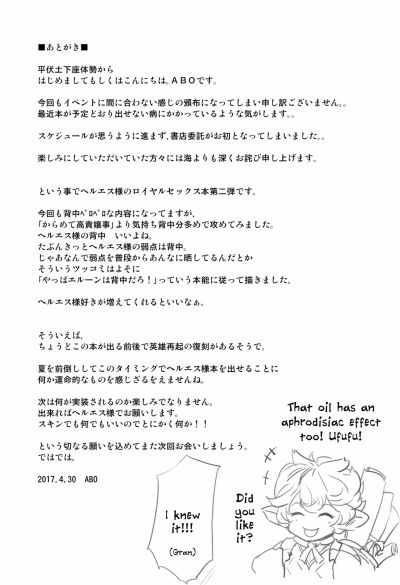 ■あとがき■
平伏土下座体勢から
はじめましてもしくはこんにちは。ＡＢＯです。
今回もイベントに間に合わない感じの頒布になってしまい申し訳ございません。。
最近本が予定どおり出せない病にかかっているような気がします。。
スケジュールが思うように進まず、書店委託がお初となってしまいました。。
楽しみにしていただいていた方々には海よりも深くお詫び申し上げます。
という事でヘルエス様のロイヤルセックス本第二弾です。
今回も背中ﾍﾟﾛﾍﾟﾛな内容になってますが、
「からめて高貴嬢事」より気持ち背中分多めで攻めてみました。
ヘルエスの背中　いいよね。
たぶんきっとヘルエス様の弱点は背中。
じゃあなんで弱点を普段からあんなに晒してるんだとか
そういうツッコミはよそに
「やっぱエルーンは背中だろ！」っていう本能に従って描きました。
ヘルエス様好きが増えてくれるといいなぁ。
そういえば、
ちょうどこの本が出る前後で英雄再起の復刻があるそうで。
夏を前倒ししてこのタイミングでヘルエス様本を出せることに
何か運命的なものを感じざるをえませんね。
次は何が実装されるのか楽しみでなりません。
出来ればヘルエス様でお願いします。
スキンでも何でもいいのでとにかく何か！！
という切なる願いを込めてまた次回お会いしましょう。
ではでは。
2017.4.30　ABO
That oil has an
aphrodisiac effect
too! Ufufu!
Did
you
like
it?
I knew
it!!!
(Gran)